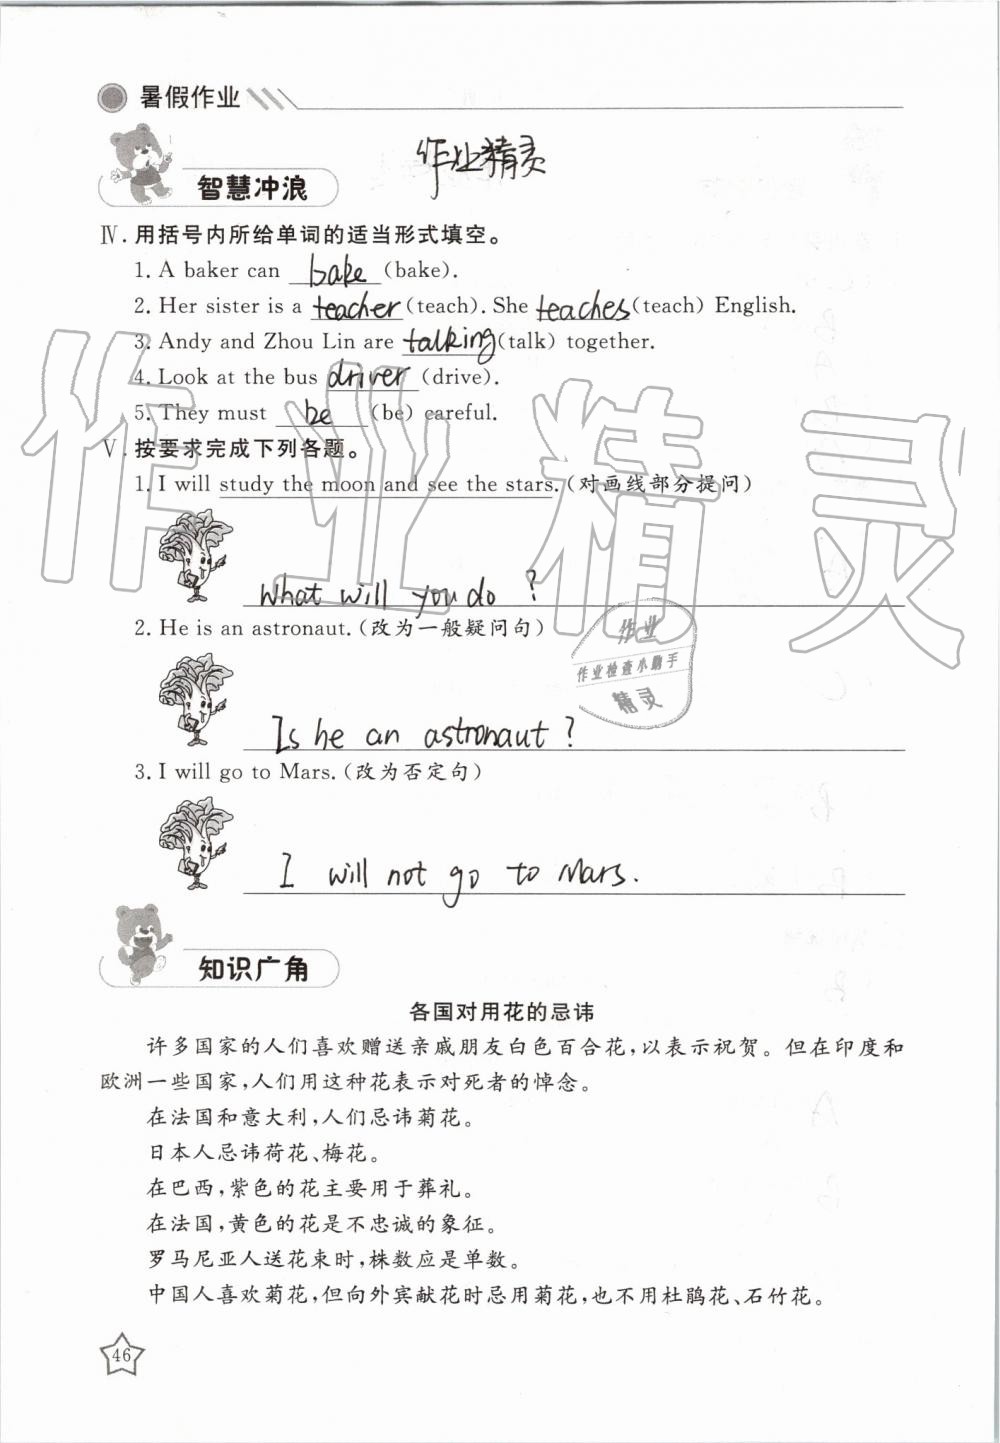 暑假作业
作业精灵
智慧冲浪
Ⅳ.用括号内所给单词的适当形式填空。
1. A baker can bake (bake).
2. Her sister is a teacher (teach). She teaches (teach) English.
3. Andy and Zhou Lin are talking (talk) together.
4. Look at the bus driver (drive).
5. They must be (be) careful.
Ⅴ.按要求完成下列各题。
1. I will study the moon and see the stars.(对画线部分提问)
What will you do ?
2. He is an astronaut.(改为一般疑问句)
作业
作业检查小助手
精灵
Is he an astronaut ?
3. I will go to Mars.(改为否定句)
I will not go to Mars.
作业精灵
知识广角
各国对用花的忌讳
许多国家的人们喜欢赠送亲戚朋友白色百合花,以表示祝贺。但在印度和
欧洲一些国家,人们用这种花表示对死者的悼念。
在法国和意大利,人们忌讳菊花。
日本人忌讳荷花、梅花。
在巴西,紫色的花主要用于葬礼。
在法国,黄色的花是不忠诚的象征。
罗马尼亚人送花束时,株数应是单数。
中国人喜欢菊花,但向外宾献花时忌用菊花,也不用杜鹃花、石竹花。
46